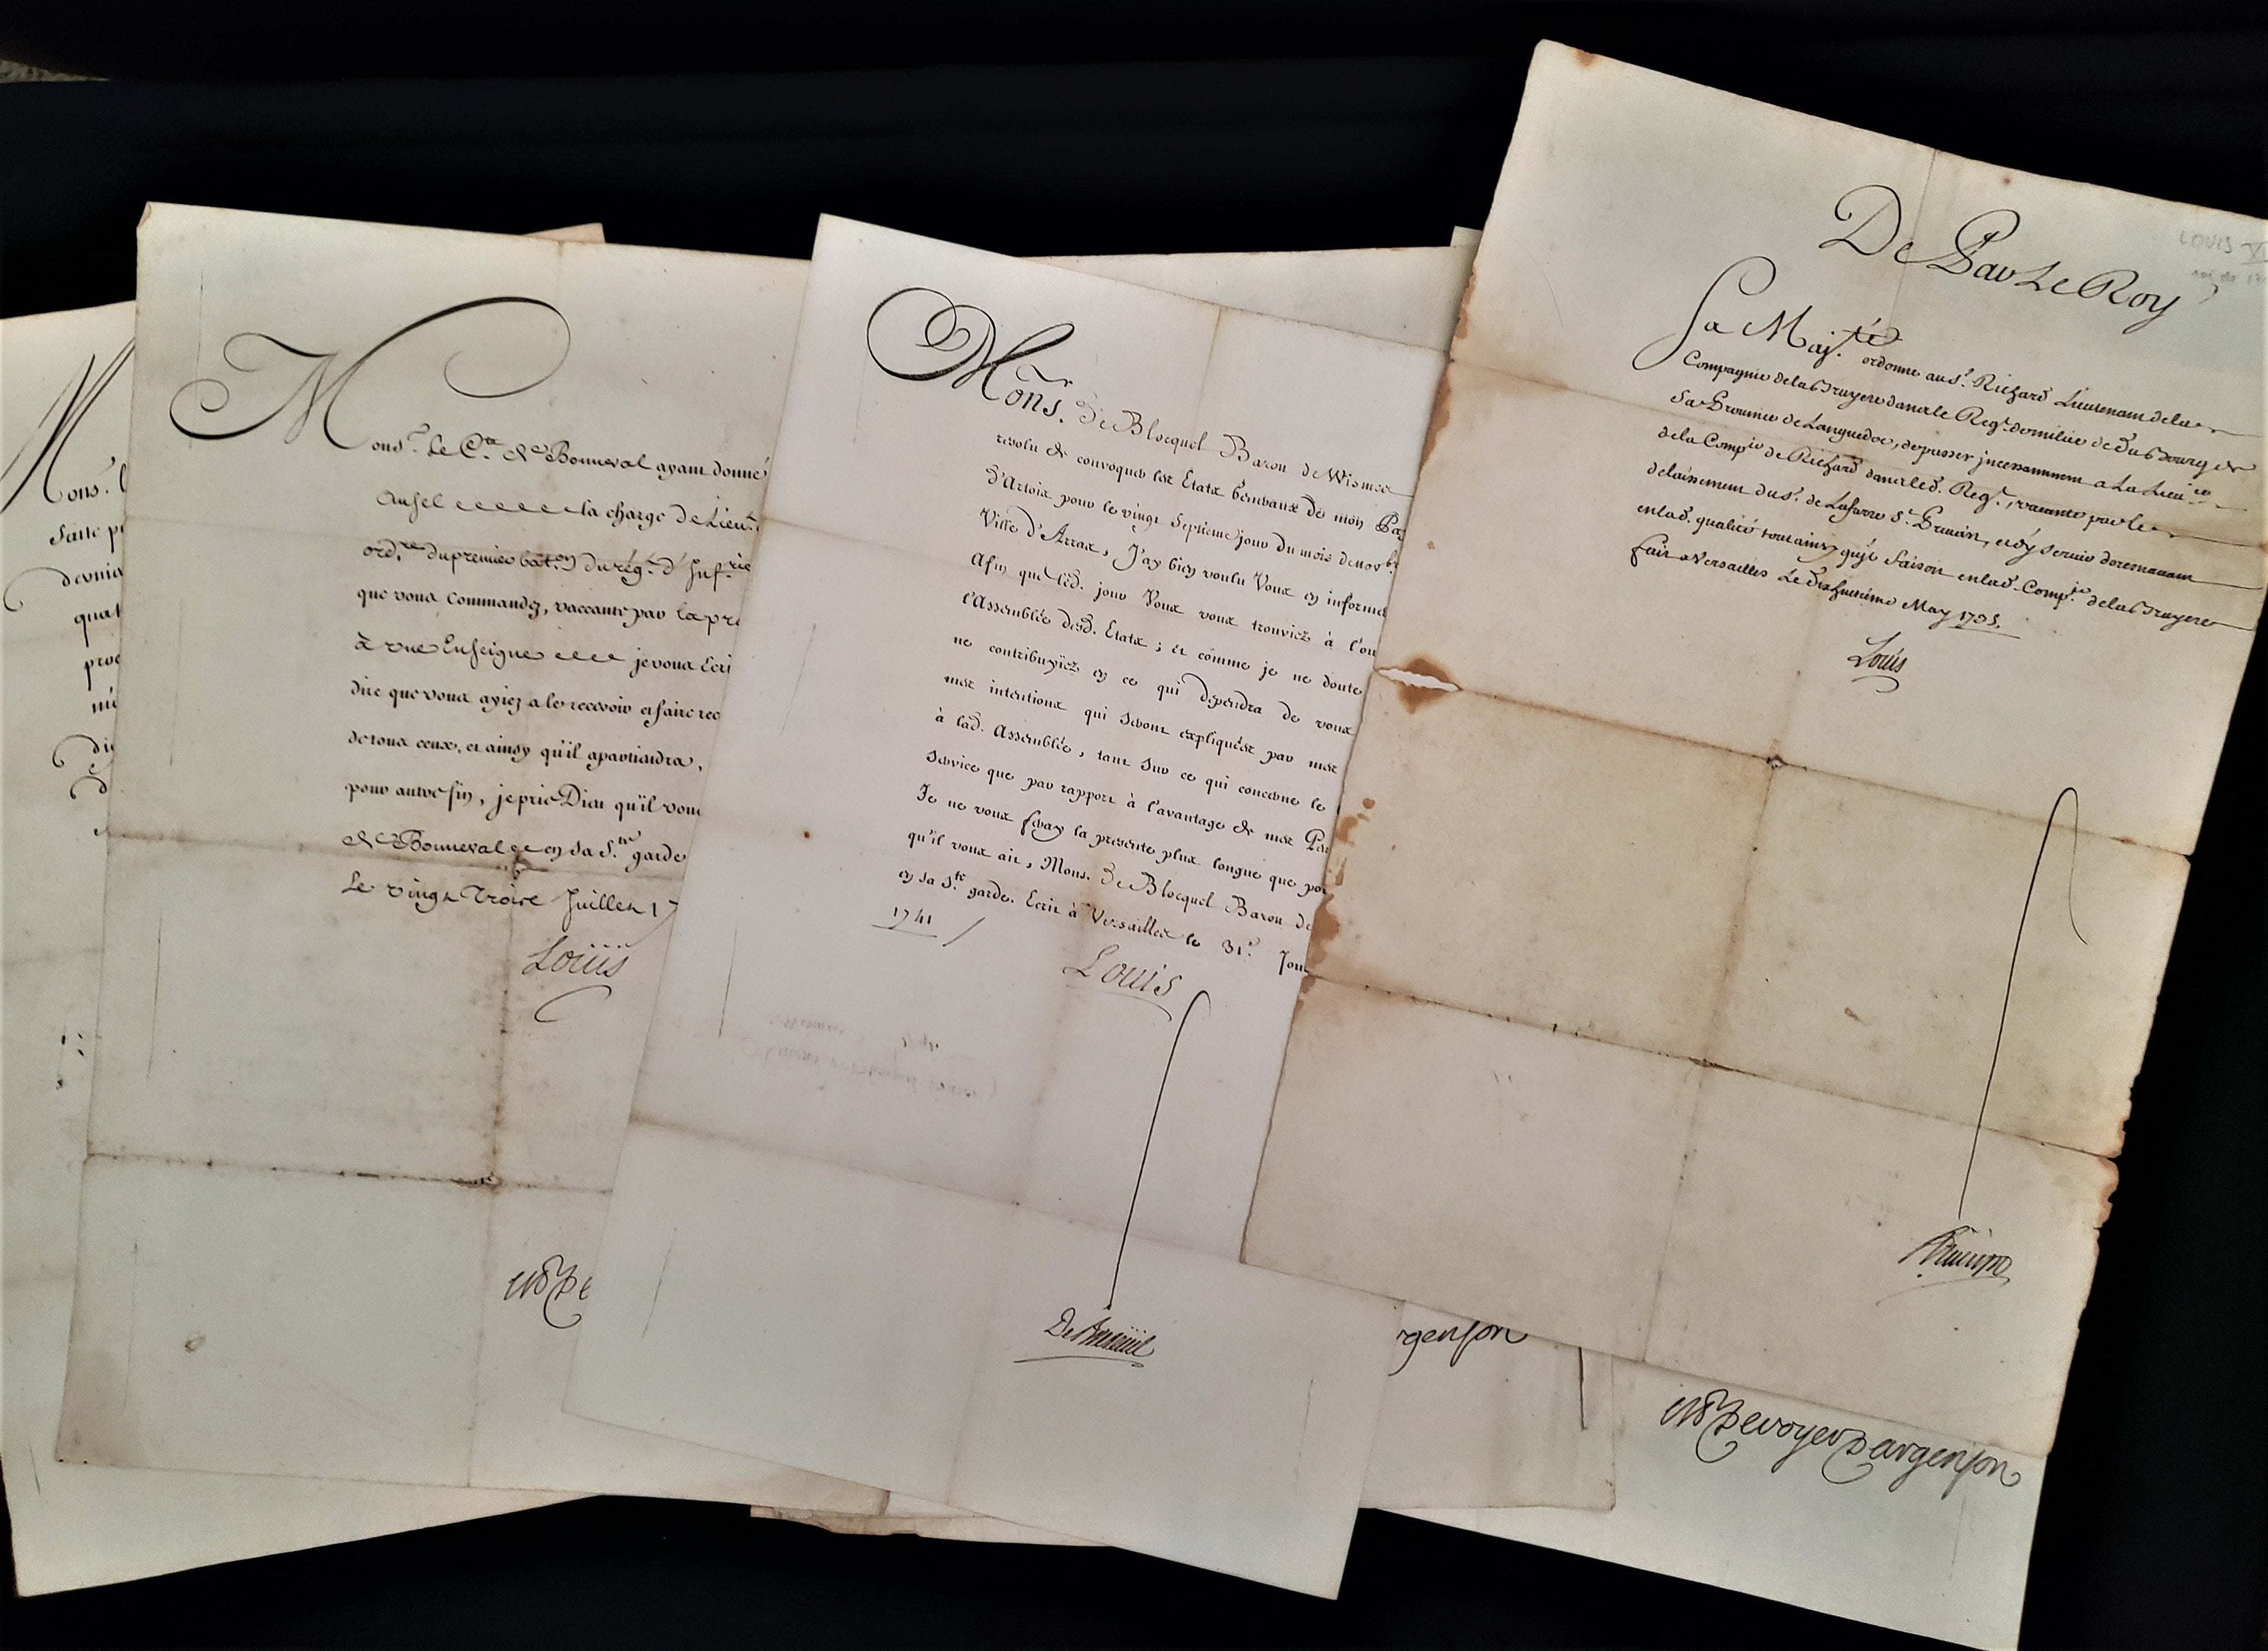 Mons. l
faite p
dernie
quat
proc
Mons.r le C.te de Bonneval ayant donné
Ansel la charge de Lieut.
ord.re du premier bat.on du rég.t d'Inf.rie
que vous commandez, vaccante par la pr
à une Enseigne je vous Ecri
dire que vous ayiez a le recevoir et faire rec
de tous ceux, et ainsy qu'il apartiendra,
pour autre fin, je prie Dieu qu'il vous
de Bonneval en sa S.te garde
Le vingt Trois Juillet 17
Louis
Mons. De Blocquel Baron de Wismes
resolu de convoquer les Etats Généraux de mon Pay
d'Artois pour le vingt Septième jour du mois de nov.bre
Ville d'Arras, J'ay bien voulu Vous en informer
Afin que led. jour Vous vous trouviez à l'ou
l'Assemblée desd. Etats ; et comme je ne doute
ne contribuyiez en ce qui dépendra de vous
mes intentions qui seront expliquées par mes
à lad. Assemblée, tant sur ce qui concerne le
service que par rapport à l'avantage de mes Peu
Je ne vous feray la presente plus longue que po
qu'il vous ait, Mons. De Blocquel Baron de
en sa S.te garde. Ecrit à Versailles le 31.e Jou
1741
Louis
De Breteüil
De Par Le Roy
LOUIS XV
Sa Maj.té ordonne au S.r Richard Lieutenant de la
Compagnie de la Bruyere dans le Reg.t de milice de Dubourg de
Sa Province de Languedoc, de passer incessamment a La Lieu.ce
de la Comp.ie de Richard dans led. Reg.t, vacante par le
delaissement du S.r de Lafarre S.t Germain, et d'y servir doresnavant
en lad. qualité tout ainsy qu'il faisoit en lad. Comp.ie de la Bruyere
fait a Versailles Le dixhuitième May 1735.
Louis
rgenson
M De voyer D'argenson